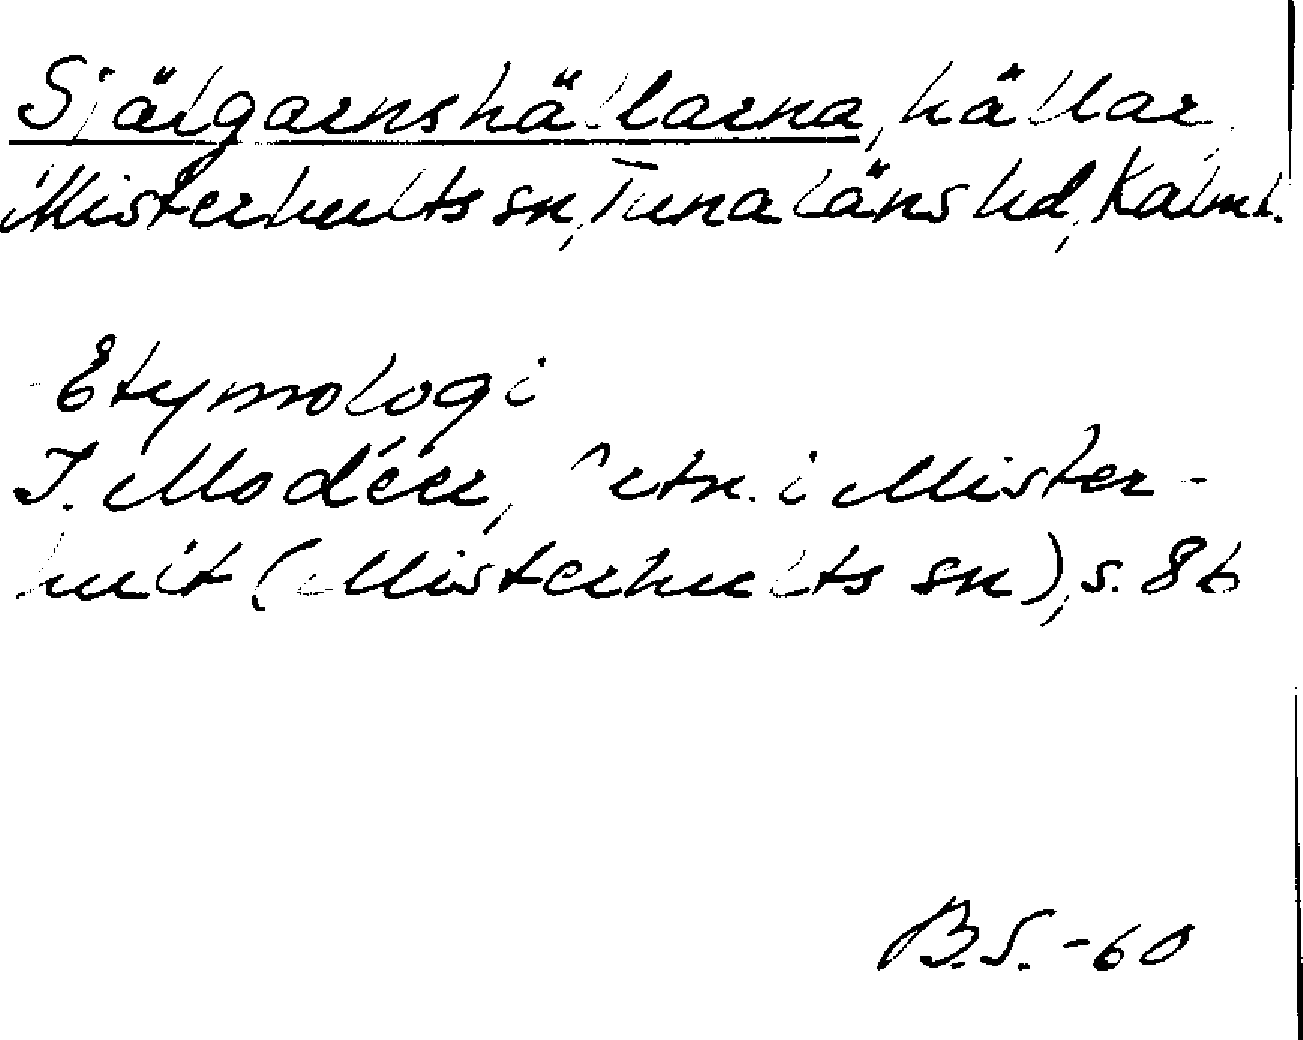 Själgarnshällarna, hällar,
Misterhults sn, Tunaläns hd, Kalm.l.
Etymologi
I. Modéer, Ortn. i Mister-
hult (Misterhults sn), s. 86
B.S. -60